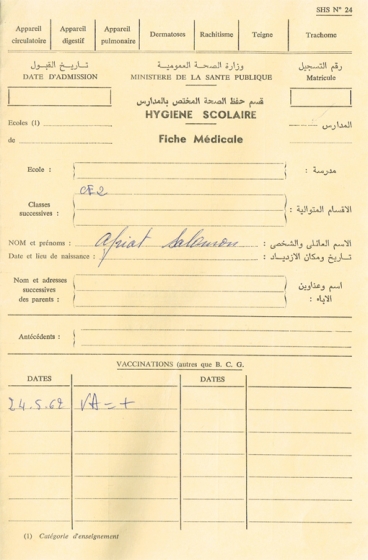 SHS N° 24
Appareil circulatoire Appareil digestif Appareil pulmonaire Dermatoses Rachitisme Teigne Trachome
تاريخ القبول وزارة الصحة العمومية رقم التسجيل
DATE D'ADMISSION MINISTERE DE LA SANTE PUBLIQUE Matricole
قسم حفظ الصحة المختص بالمدارس
HYGIENE SCOLAIRE
Ecoles (1) المدارس
de Fiche Médicale
Ecole : مدرسة :
CE2
Classes successives : الاقسام المتوالية :
NOM et prénoms : Afriat Salomon الاسم العائلى والشخصى :
Date et lieu de naissance : تاريخ ومكان الازدياد :
Nom et adresses successives des parents : اسم وعناوين الاباء :
Antécédents :
VACCINATIONS (autres que B. C. G.
DATES DATES
24.5.62 VA = +
(1) Catégorie d'enseignement